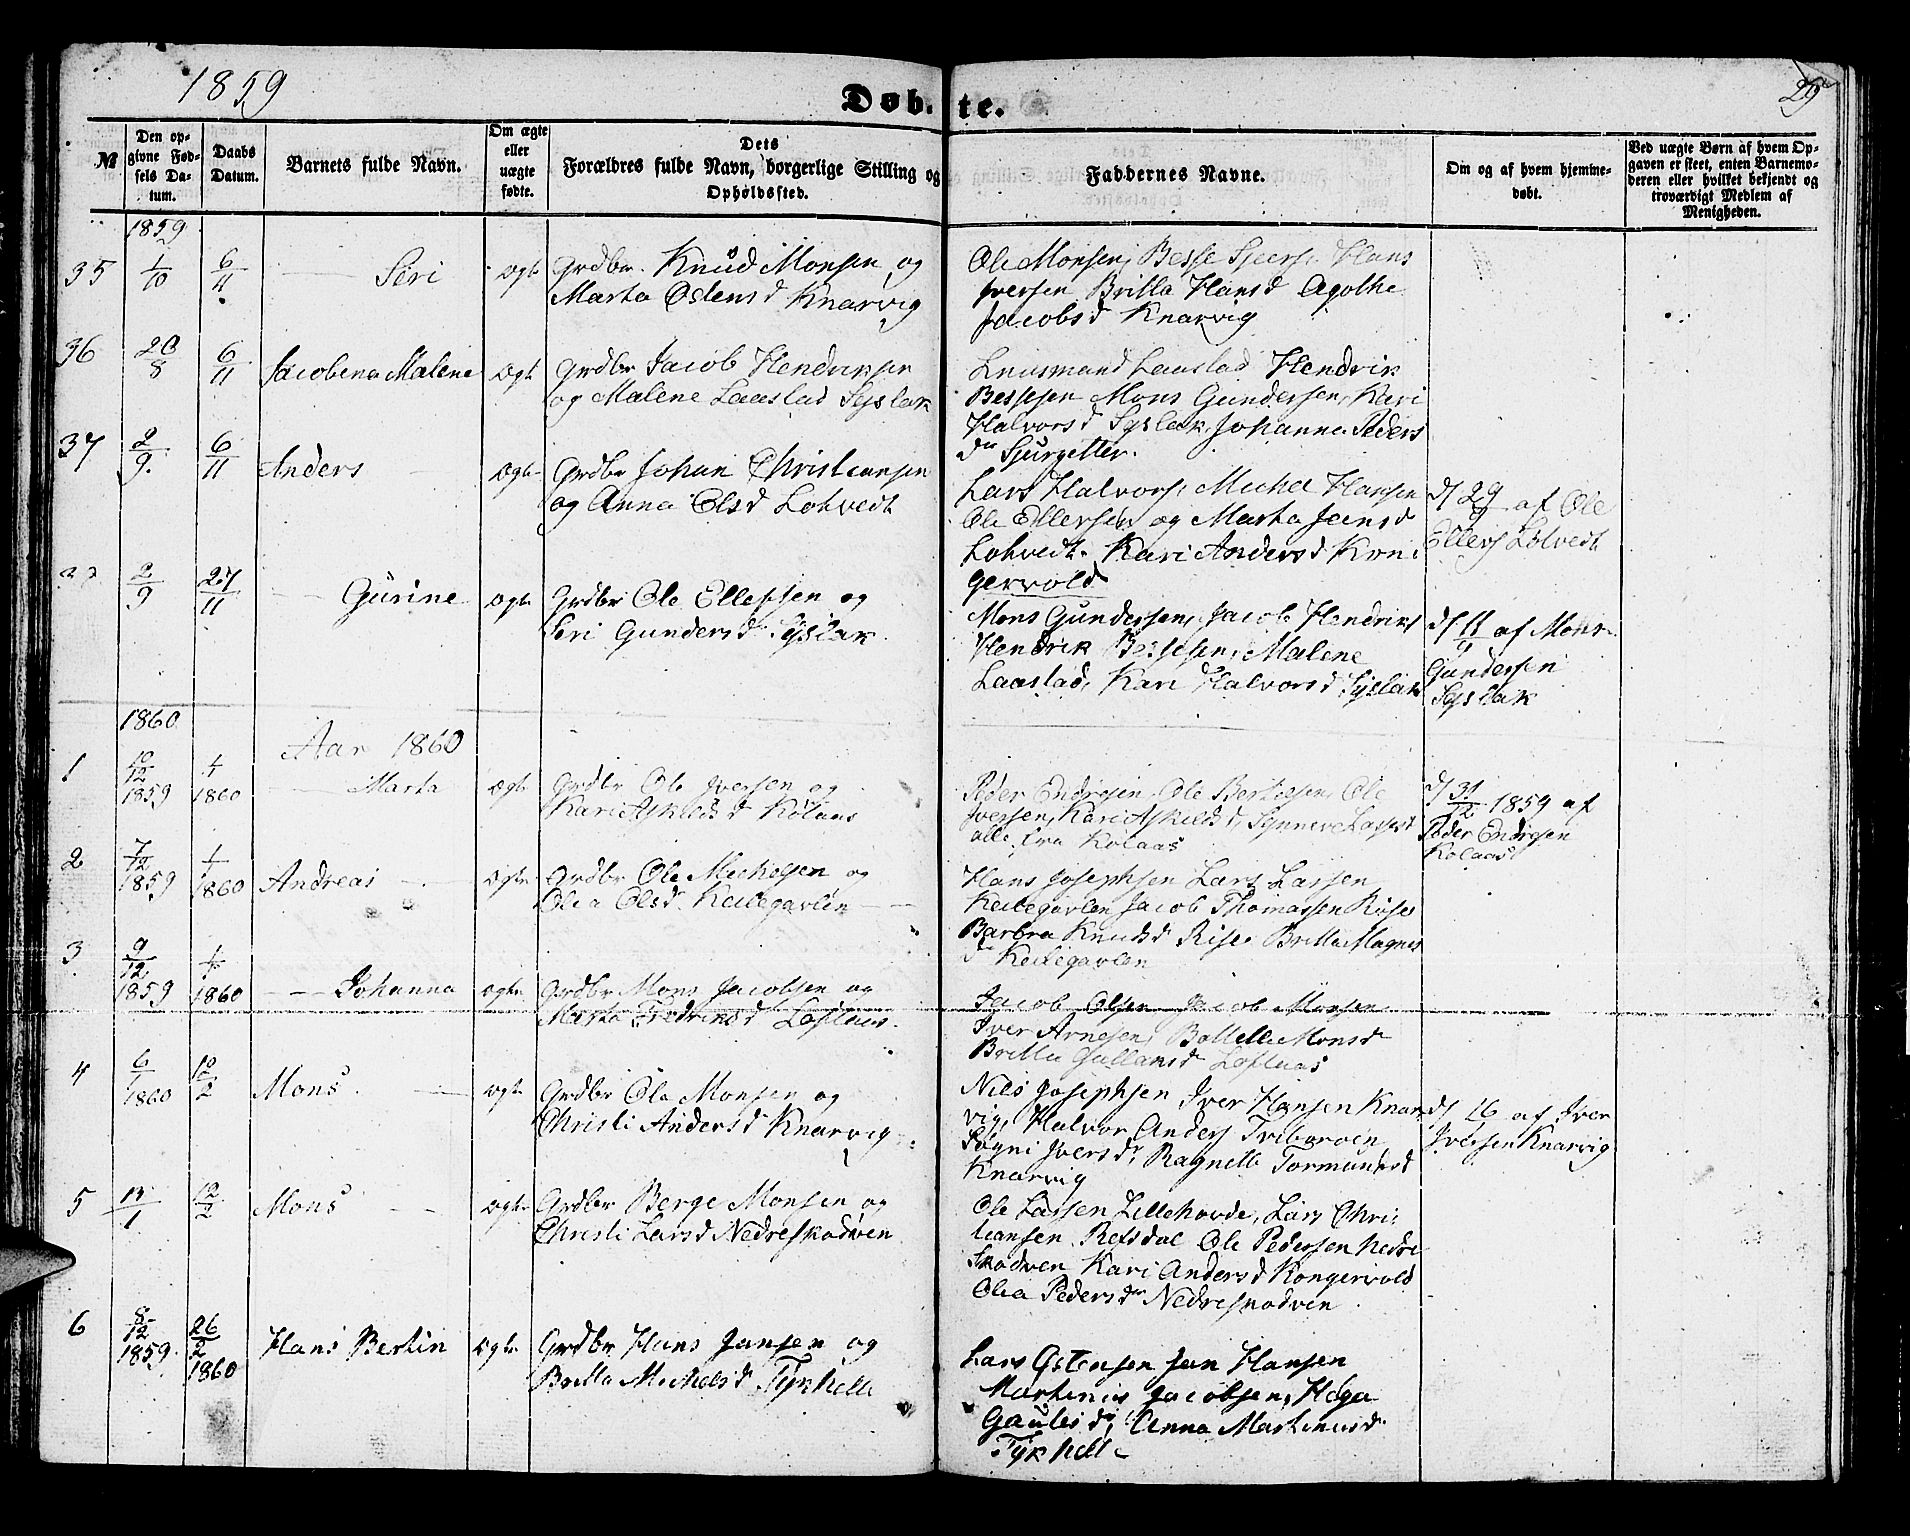 1859
Døbte.
29
№
Den opgivne Fødsels Datum.
Daabs Datum.
Barnets fulde Navn.
Om ægte eller uægte fødte.
Dets Forældres fulde Navn, borgerlige Stilling og Opholdssted.
Faddernes Navne.
Om og af hvem hjemmedøbt.
Ved uægte Børn af hvem Opgaven er skeet, enten Barnemoderen eller hvilket bekjendt og troværdigt Medlem af Menigheden.
1859
35 1/10 6/11 Seri ægte Grdbr. Knud Monsen og
Marta Ostensd Knarvig
Ole Monsen, Besse Sjurs, Hans
Iversen Britta Hansd Agothe
Jacobsd Knarvig
36 20/8 6/11 Jacobena Malene ægte Grdbr Jacob Hendriksen
og Malene Laastad Syslak
Lensmand Laastad Hendrik
Bessesen Mons Gundersen, Kari
Halvorsd Syslak, Johanna Peders
dr Sjurgetter.
37 2/9 6/11 Anders ægte Grdbr Johan Christiansen
og Anna Olsd Lohvedt
Lars Halvors, Michel Hansen
Ole Ellersen og Marta Jensd
Lohvedt. Kari Andersd Kon
gervold
d/ 29/9 af Ole
Ellers Lohvedt
2/9 27/11 Gurine ægte Grdbr Ole Ellefsen og
Seri Gundersd Syslak.
Mons Gundersen, Jacob Hendriks
Hendrik Bessesen, Malene
Laastad, Kari Halvorsd Syslak
d/ 11/9 af Mons
Gundersen
Syslak
1860
Aar 1860
1 10/12 1859 1/1 1860 Marta ægte Grdbr Ole Iversen og
Kari Askildsd Kolaas
Peder Endresen, Ole Bertoesen, Ole
Iversen, Kari Askildsd, Synneve Larsd
alle fra Kolaas
d/ 31/12 1859 af
Peder Endresen
Kolaas
2 7/12 1859 1/1 1860 Andreas ægte Grdbr Ole Michelsen og
Olea Olsd Keilegavlen
Hans Josephsen Lars Larsen
Keilegavlen Jacob Thomassen Rise
Barbra Knudsd Rise, Britta Magnes
dr Keilegavlen
3 9/12 1859 1/1 1860 Johanna ægte Grdbr Mons Jacobsen og
Marta Fredriksd Loflaas.
Jacob Olsen Jacob Monsen
Iver Arnesen, Botilla Monsd
Britta Gullansd Loflaas
4 6/1 1860 10/2 Mons ægte Grdbr Ole Monsen og
Christi Andersd Knarvig
Nils Josephsen Iver Hansen Knar
vig, Halvor Anders Triboroen
Søgni Iversdr, Ragnella Tormundsd
Knarvig
d/ 16 af Iver
Iversen Knarvig
5 13/1 12/2 Mons ægte Grdbr Berge Monsen og
Christi Larsd Nedreskodven
Ole Larsen Lillehovde, Lars Chri
tiansen Refsdal Ole Pedersen Nedre
Skodven Kari Andersd Kongervold
Olia Pedersdr Nedreskodven
6 8/12 1859. 26/2 1860 Hans Bertin ægte Grdbr Hans Jansen og
Britta Michelsd Tyskhelle
Lars Ostensen Jan Hansen
Martinus Jacobsen, Helga
Gautesdr, Anna Martinusd
Tyskhelle